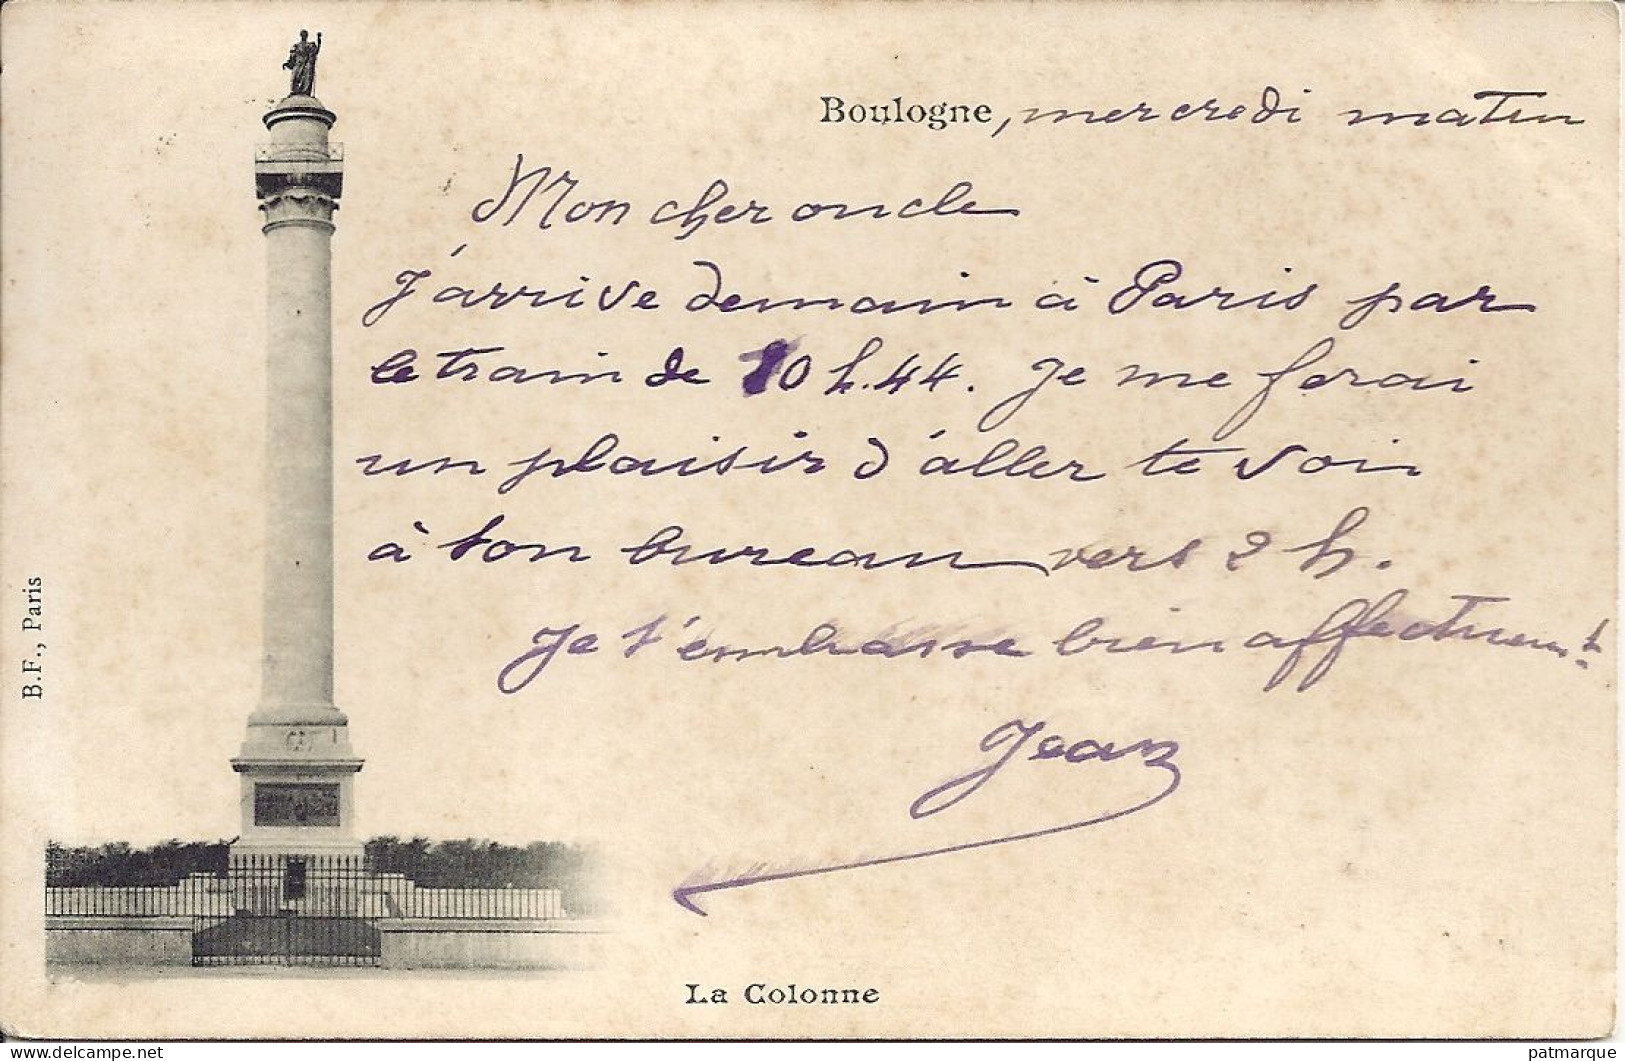 Boulogne, mercredi matin
Mon cher oncle
J'arrive demain à Paris par
le train de 10 h.44. Je me ferai
un plaisir d'aller te voir
à ton bureau vers 2 h.
Je t'embrasse bien affectueusmt.
Jean
B.F., Paris
La Colonne
delcampe.net
patmarque